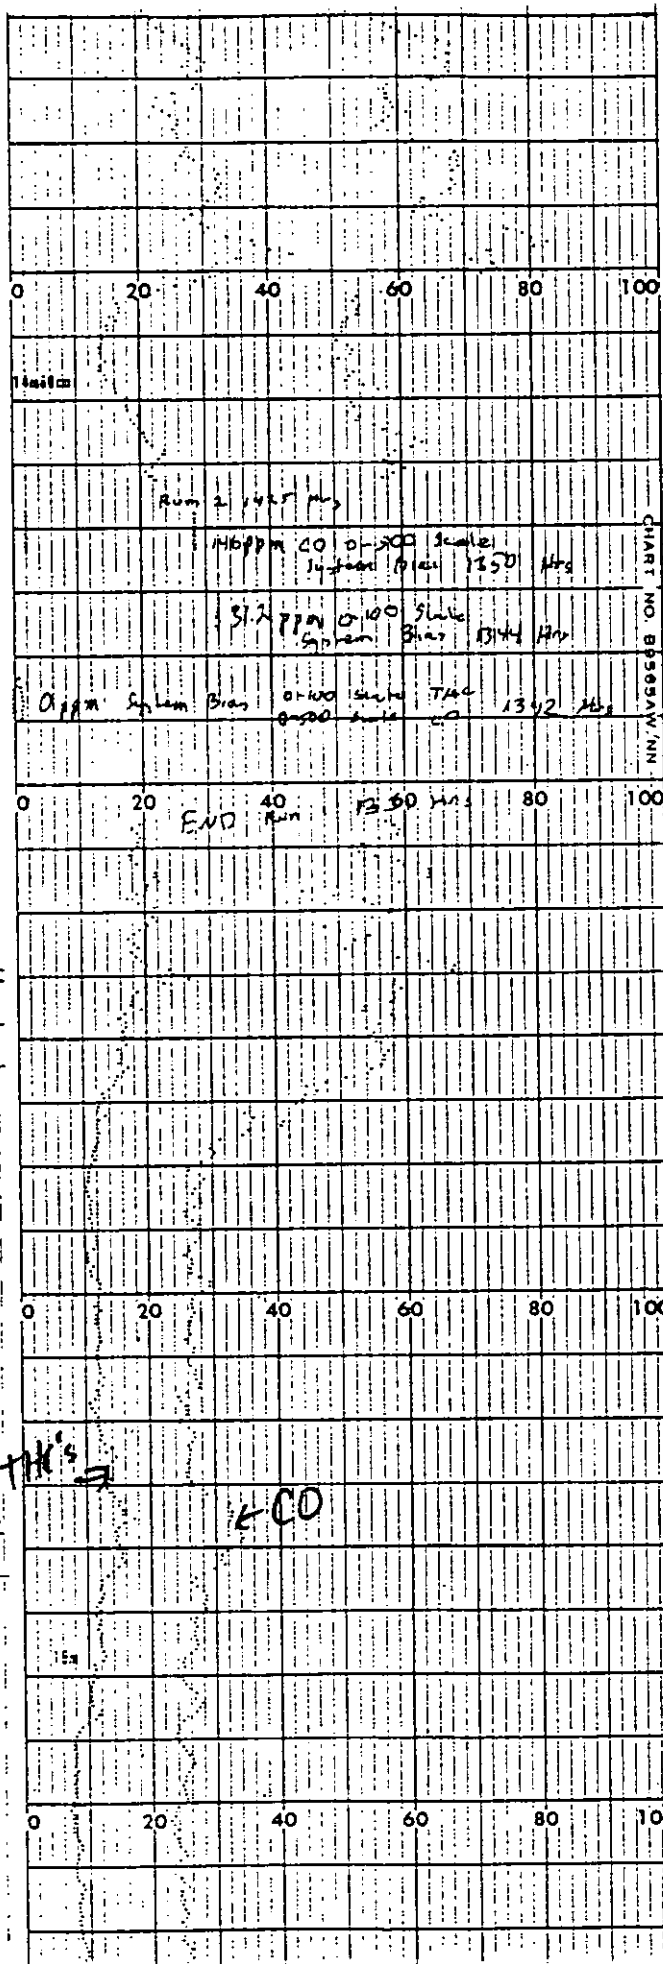 0 20 40 60 80 100
Run 2 1425 Hrs
146ppm CO 0-500 Scale
System Bias 1350 Hrs
31.2 ppm 0-100 Scale
System Bias 1344 Hrs
0ppm System Bias 0-100 Scale THC 1342 Hrs
0-500 Scale CO
CHART NO. B9565AW/NN
0 20 40 60 80 100
END Run Hrs
0 20 40 60 80 100
THC's
← CO
0 20 40 60 80 100